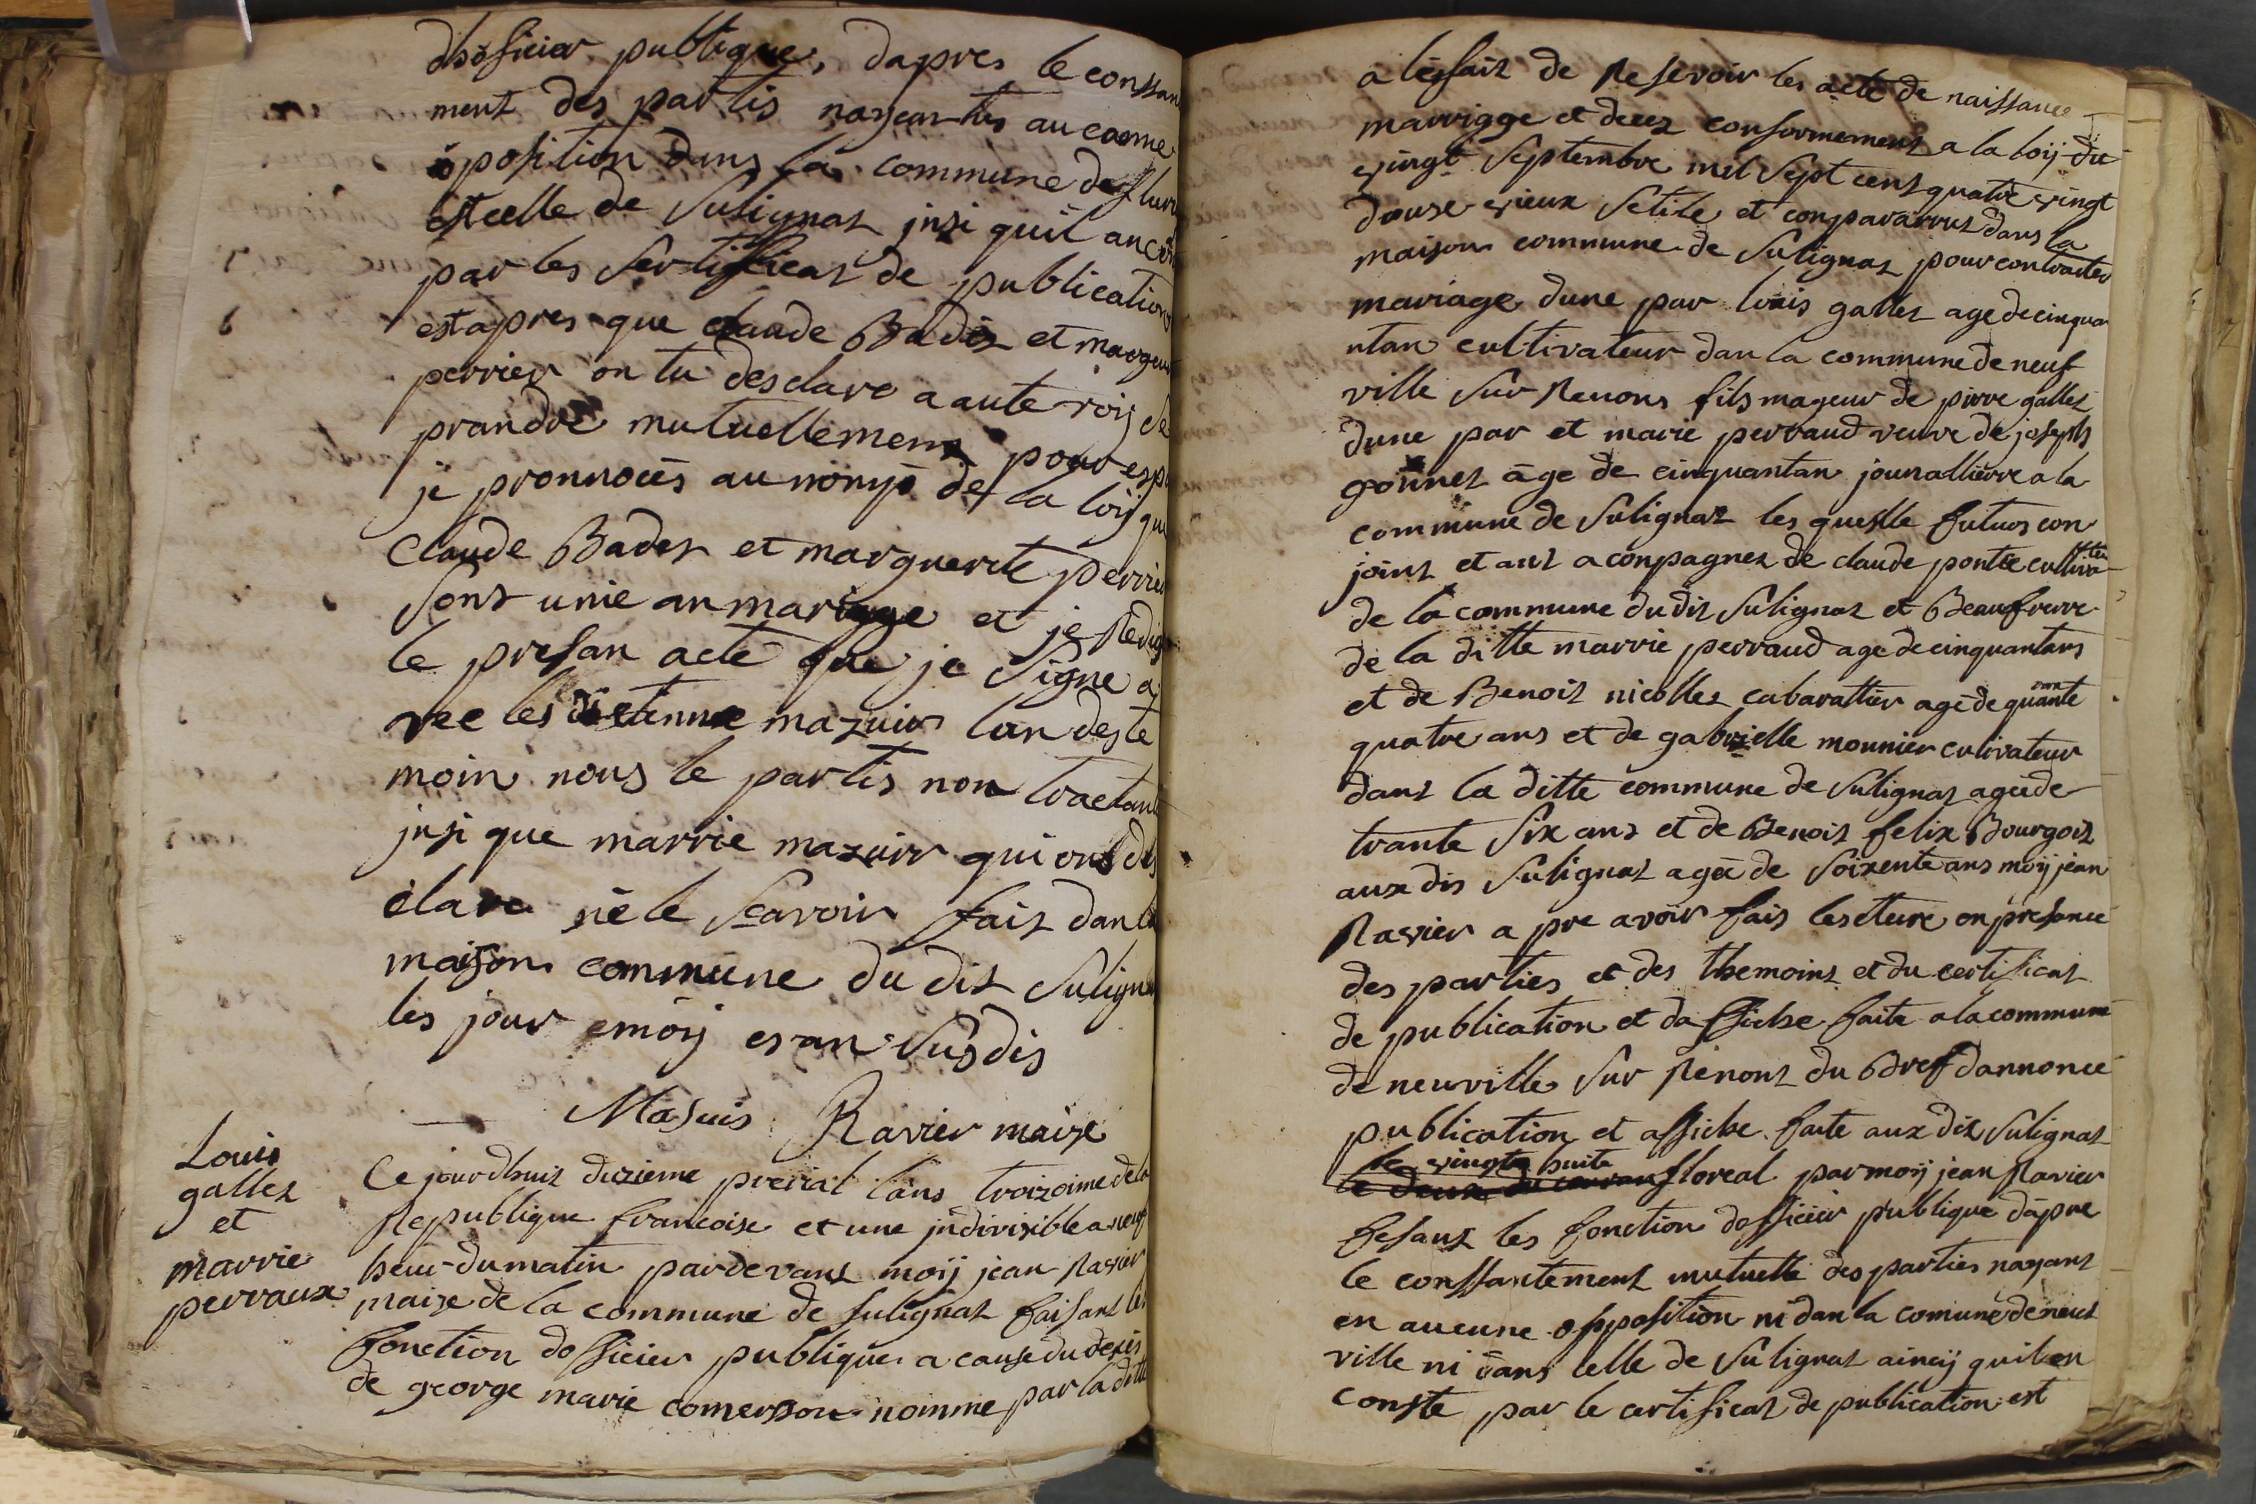 dhofficier publique, dapres le conssan
ment des partis nayeantes aucorme
oposition dans la commune de fluri
est celle de Sulignat jnsi quil an cons
par les Sertifficat de publication
est apres que claude Badet et marguer
perrier on tu desclare a aute voij Se
prandre mutuellement pour espo
je pronnoces au nomp de la loij que
Claude Badet et marguerite perrier
Sont unie an mariage et je Redige
le presan acte que je Signe a
vec les dit etienne mazuir lun des te
moin nous le partis non tractant
jnsi que marrie mazuir qui ont des
clare ne le Scavoir fait dan la
maison commune du dit Sulignat
les jour emoij es an Susdis
Masuis Ravier maire
Louis
gallet
et
marrie
perraux
Ce jourdhuit dizieme prerial lans troizoime de la
Republique francoise et une jndivisible a neuf
heur du matin pardevant moij jean Ravier
maire de la commune de Sulignat faisant les
fonction dofficier publique a cause du deces
de george marie comerson nomme par la ditte
a lesfait de Reservoir les acte de naissance
marrigge et deces conformement a la loij du
vingt Septembre mil Sept cent quatre vingt
douse vieux Setile et conparurrut dans la
maison commune de Sulignat pour contracter
mariage dune par louis gallet age de cinqua
ntan cultivateur dan la commune de neuf
ville Sur Renons fils mageur de pierre gallet
dune par et marie perraud veuve de joseph
gonnet age de cinquantan jounalliere a la
commune de Sulignat les queslle futuos con
joint et ant a conpagnez de claude pontte cultivateu
de la commune du dit Sulignat et Beaufrerre
de la ditte marrie perraud age de cinquantans
et de Benoit nicollet cabarattier age de quarante
quatre ans et de gabrielle mounier culivateur
dant la ditte commune de Sulignat agé de
trante Six ans et de Benoit felix Bourgoit
aux dis Sulignat agé de Soixente ans moij jean
Ravier a pre avoir fais lescture on presance
des parties et des themoins et du certificat
de publication et daffiche faite a la commune
de neuville Sur Renont du Breff dannonce
publication et affiche faite aux dit Sulignat
le vingt huite
le deux du couran floreal par moij jean Ravier
fesant les fonction dofficier publique dapre
le conssantement mutuelle des parties nayant
en aucune opposition ni dan la comune de neuf
ville ni dans celle de Sulignat aincij quil en
conste par le certificat de publication est